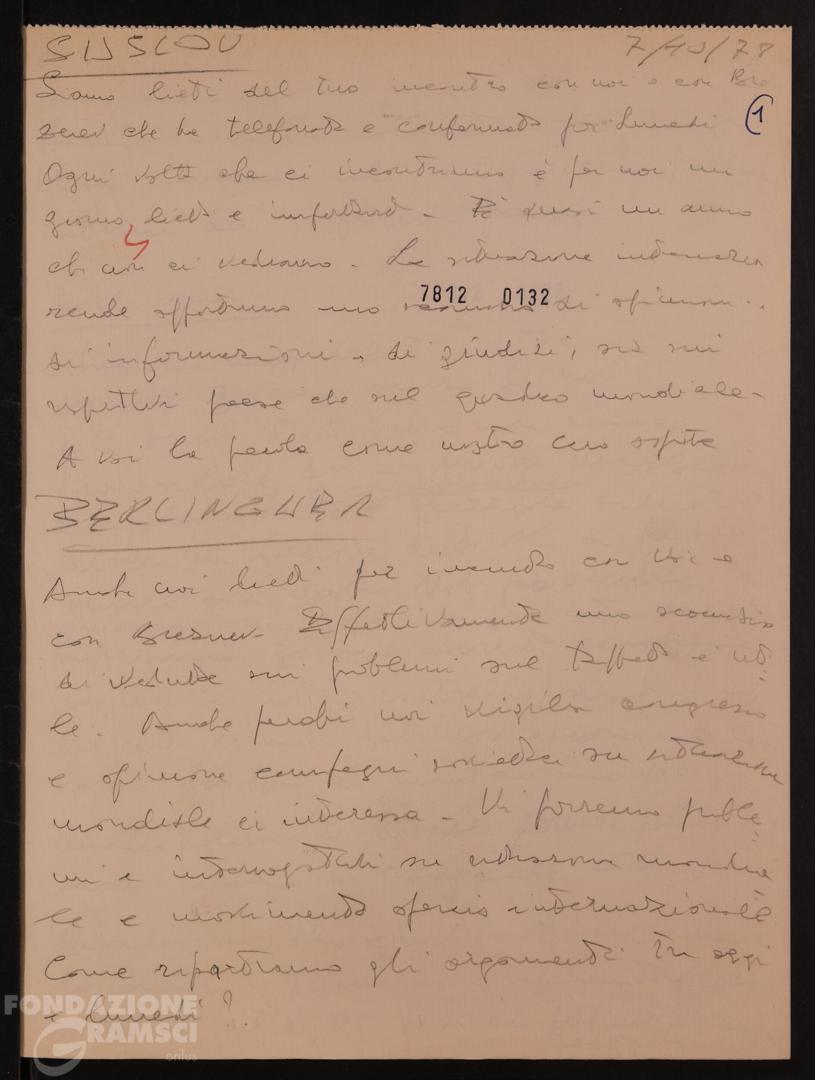 SUSLOV 7/10/78
Siamo lieti del tuo incontro con noi e con Bre
znev che ha telefonato e confermato per Lunedì
1
Ogni volta che ci incontriamo è per noi un
giorno lieto e importante. È quasi un anno
che non ci vediamo. La situazione internazion
rende opportuno uno di opinioni
7812 0132
di informazioni, di giudizi, sia sui
rispettivi paesi che sul quadro mondiale.
A voi la parola come nostro caro ospite
BERLINGUER
Anche noi lieti per incontro con voi e
con Breznev. Effettivamente uno scambio
di vedute sui problemi sul tappeto è uti
le. Anche perché noi vigilia congresso
e opinione compagni sovietici su situazione
mondiale ci interessa. Vi porremo proble
mi e interrogativi su situazione mondia
le e movimento operaio internazionale
Come ripartiamo gli argomenti tra oggi
e lunedì?
FONDAZIONE
GRAMSCI
onlus